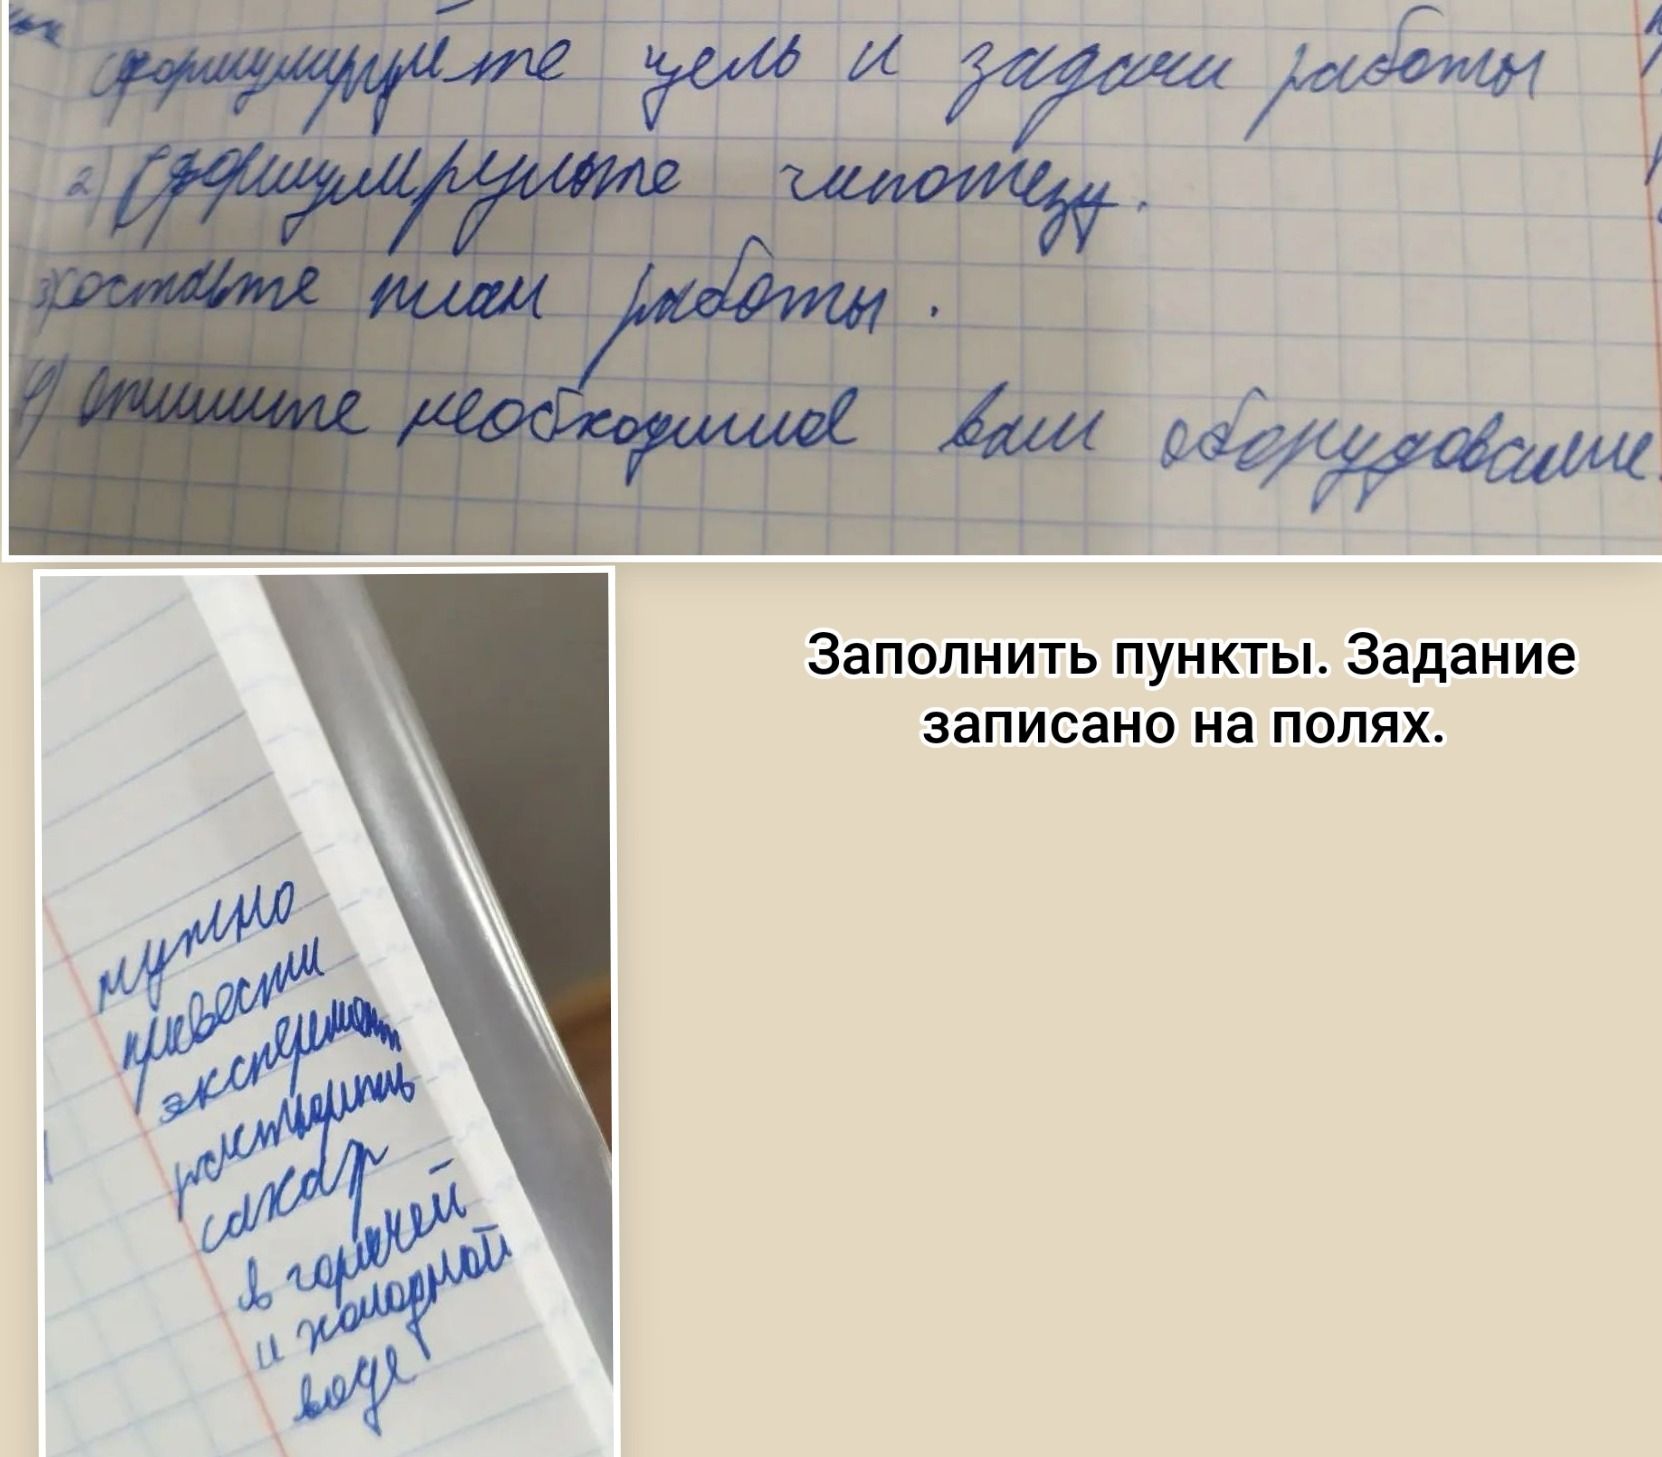 сформулируйте цель и задачи работы
2) Сформулируйте гипотезу.
3) составьте план работы.
4) Опишите необходимое вам оборудование.
Заполнить пункты. Задание
записано на полях.
нужно
провести
эксперемент
растворить
сахар
в горячей
и холодной
воде